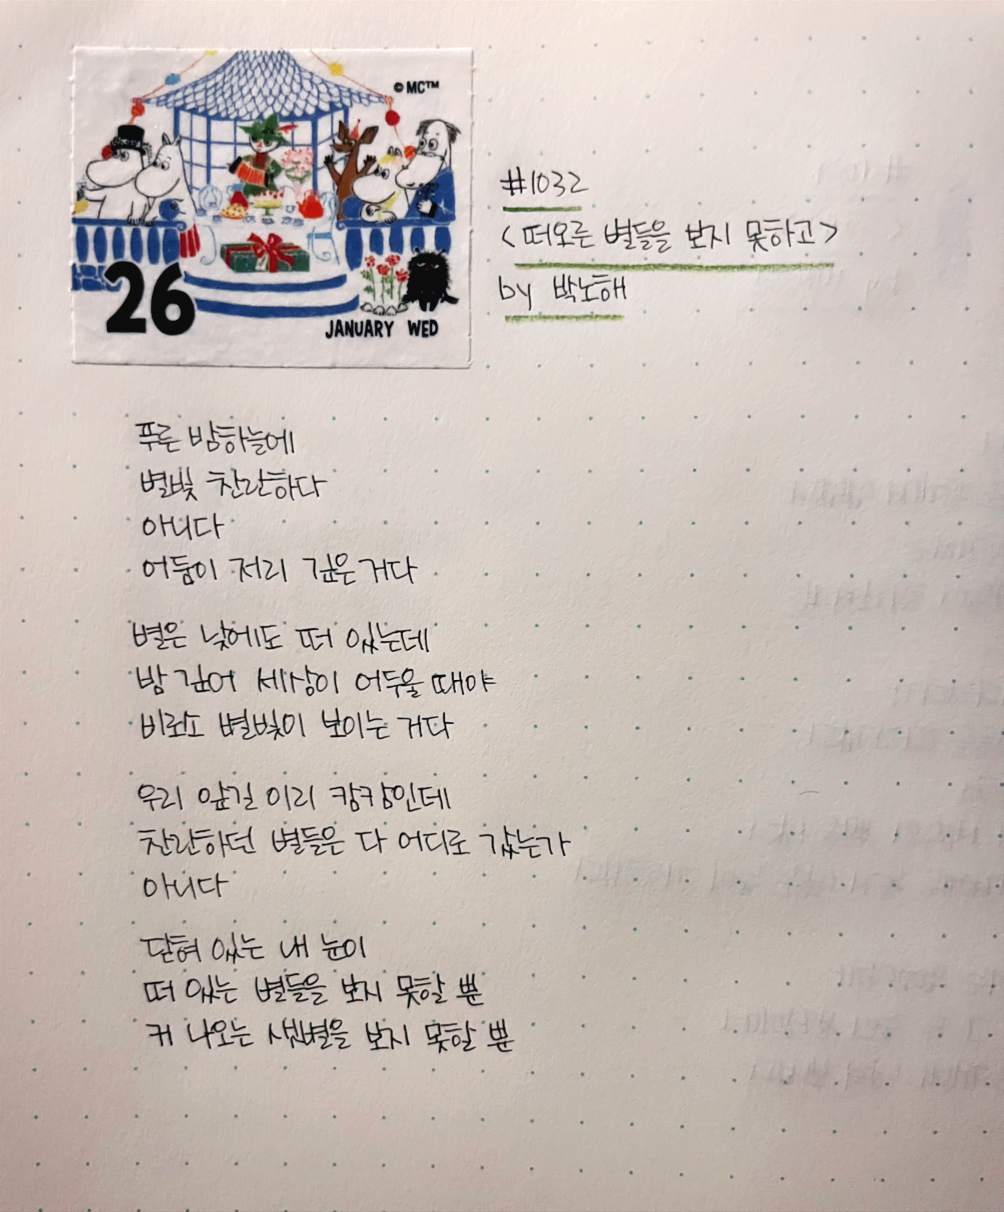 ©MC™
26
JANUARY WED
#1032
<떠오른 별들을 보지 못하고>
by 박노해
푸른 밤하늘에
별빛 찬란하다
아니다
어둠이 저리 깊은거다
별은 낮에도 떠 있는데
밤 깊어 세상이 어두울 때야
비로소 별빛이 보이는 거다
우리 앞길 이리 캄캄인데
찬란하던 별들은 다 어디로 갔는가
아니다
닫혀 있는 내 눈이
떠 있는 별들을 보지 못할 뿐
커 나오는 샛별을 보지 못할 뿐